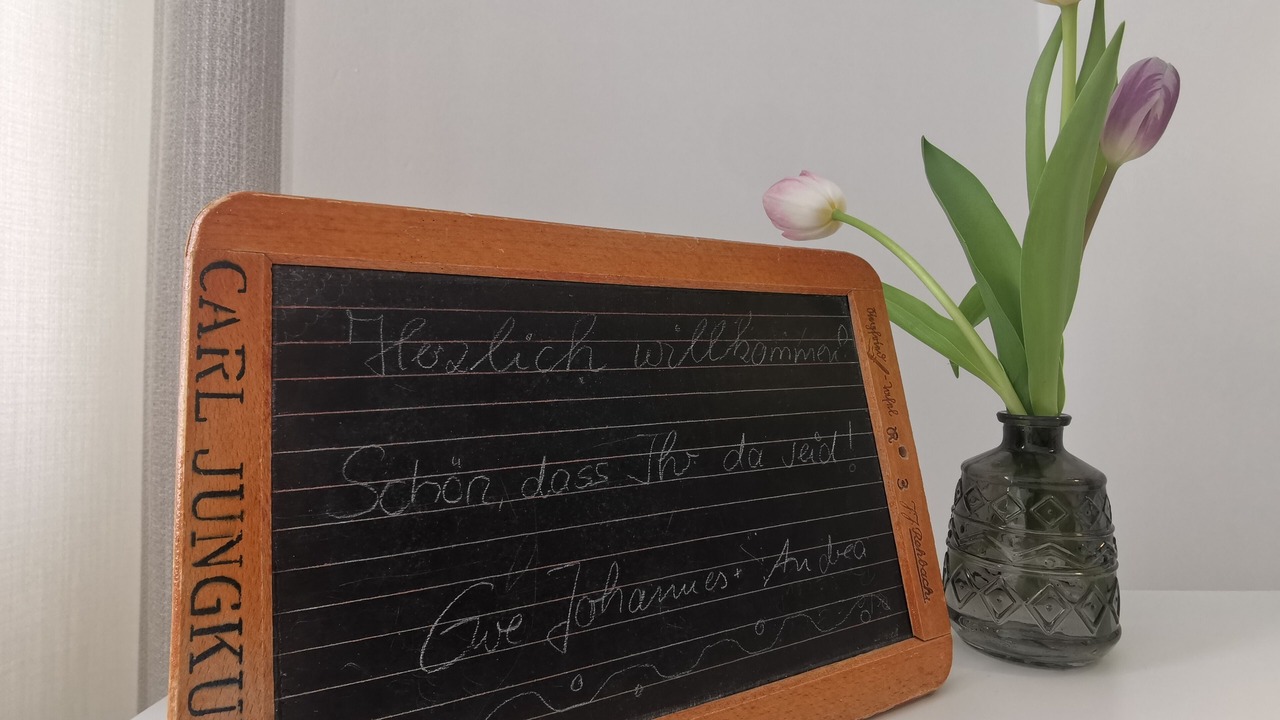 CARL JUNGKU
Herzlich willkommen!
Schön, dass Ihr da seid!
Eure Johannes + Andrea